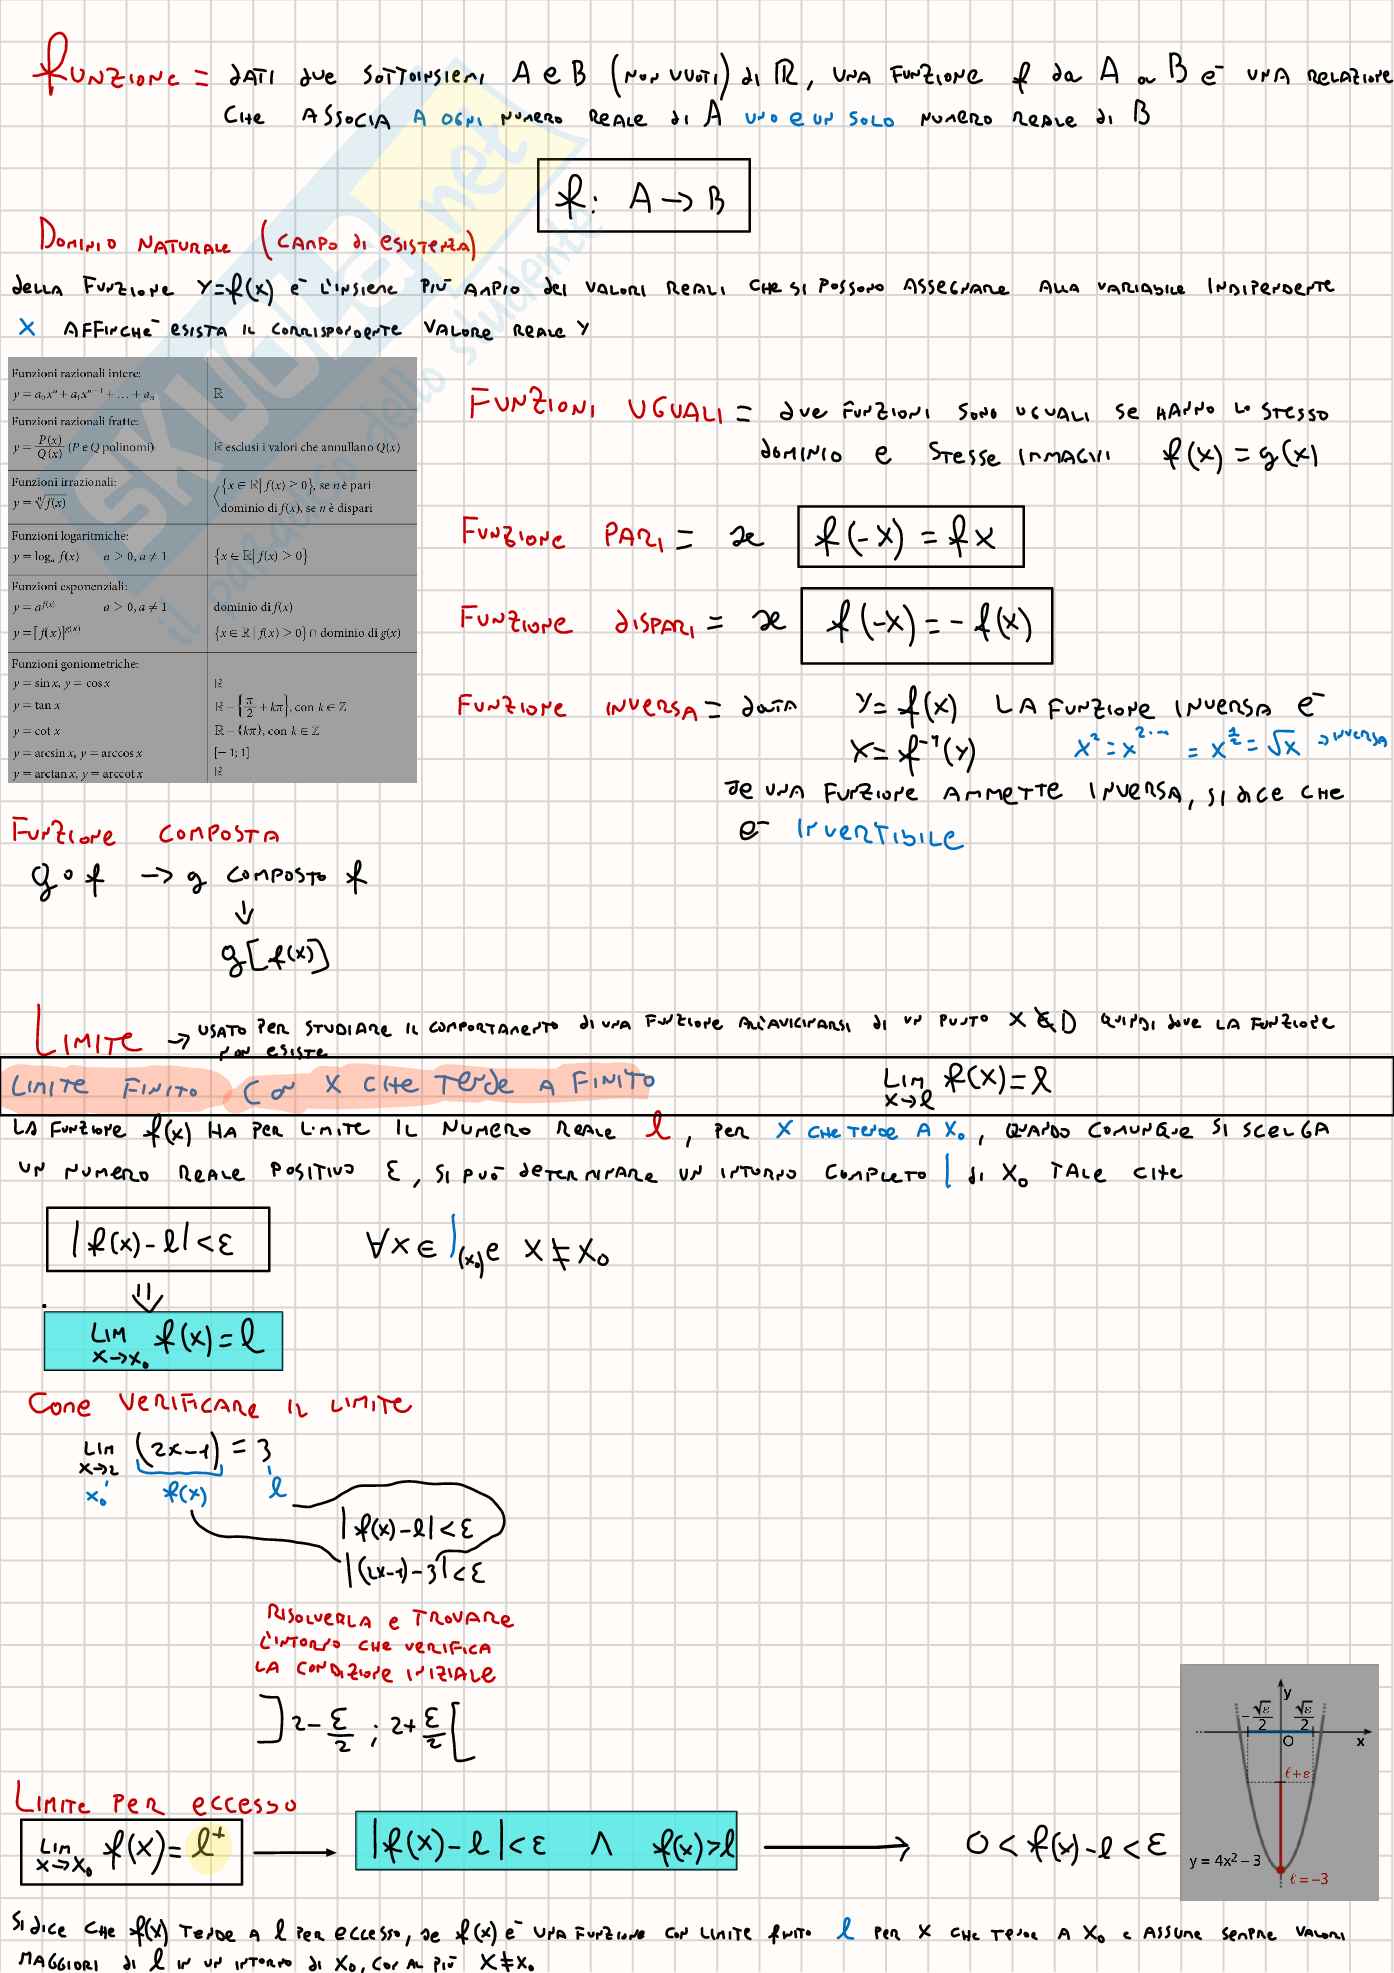 FUNZIONE = DATI DUE SOTTOINSIEMI A e B (NON VUOTI) di ℝ, UNA FUNZIONE f da A a B e- UNA RELAZIONE
CHE ASSOCIA A OGNI NUMERO REALE di A UNO e UN SOLO NUMERO REALE di B
f: A → B
DOMINIO NATURALE (CAMPO di ESISTENZA)
DELLA FUNZIONE Y=f(x) e- L'INSIEME PIÙ AMPIO DEI VALORI REALI CHE SI POSSONO ASSEGNARE ALLA VARIABILE INDIPENDENTE
X AFFINCHÉ ESISTA IL CORRISPONDENTE VALORE REALE Y
Funzioni razionali intere:
y = a₀xⁿ + a₁xⁿ⁻¹ + … + aₙ ℝ
Funzioni razionali fratte:
y = P(x)/Q(x) (P e Q polinomi) ℝ esclusi i valori che annullano Q(x)
Funzioni irrazionali:
y = ⁿ√f(x) {x ∈ ℝ | f(x) ≥ 0}, se n è pari
dominio di f(x), se n è dispari
Funzioni logaritmiche:
y = logₐ f(x) a > 0, a ≠ 1 {x ∈ ℝ | f(x) > 0}
Funzioni esponenziali:
y = a^f(x) a > 0, a ≠ 1 dominio di f(x)
y = [f(x)]^g(x) {x ∈ ℝ | f(x) > 0} ∩ dominio di g(x)
Funzioni goniometriche:
y = sin x, y = cos x ℝ
y = tan x ℝ − {π/2 + kπ}, con k ∈ ℤ
y = cot x ℝ − {kπ}, con k ∈ ℤ
y = arcsin x, y = arccos x [− 1; 1]
y = arctan x, y = arccot x ℝ
FUNZIONI UGUALI = DUE FUNZIONI SONO UGUALI SE HANNO LO STESSO
DOMINIO e STESSE IMMAGINI f(x) = g(x)
FUNZIONE PARI = se f(-x) = fx
FUNZIONE DISPARI = se f(-x) = - f(x)
FUNZIONE INVERSA = DATA Y = f(x) LA FUNZIONE INVERSA e-
X = f⁻¹(y) x² = x^2·… = x^½ = √x → INVERSA
SE UNA FUNZIONE AMMETTE INVERSA, SI DICE CHE
e- INVERTIBILE
FUNZIONE COMPOSTA
g∘f → g COMPOSTO f
↓
g[f(x)]
LIMITE → USATO PER STUDIARE IL COMPORTAMENTO DI UNA FUNZIONE ALL'AVICINARSI DI UN PUNTO X ∉ D QUINDI DOVE LA FUNZIONE
NON ESISTE
LIMITE FINITO CON X CHE TENDE A FINITO LIM x→l f(x) = l
LA FUNZIONE f(x) HA PER LIMITE IL NUMERO REALE l, PER X CHE TENDE A X₀, QUANDO COMUNQUE SI SCELGA
UN NUMERO REALE POSITIVO ε, SI PUÒ DETERMINARE UN INTORNO COMPLETO I di X₀ TALE CHE
|f(x) - l| < ε ∀x ∈ I(x₀) e X ≠ X₀
⇓
LIM x→x₀ f(x) = l
COME VERIFICARE IL LIMITE
LIM x→2 (2x-1) = 3
x₀ f(x) l
|f(x) - l| < ε
|(2x-1) - 3| < ε
RISOLVERLA e TROVARE
L'INTORNO CHE VERIFICA
LA CONDIZIONE INIZIALE
]2 - ε/2 ; 2 + ε/2[
y
−√ε/2 √ε/2
O x
ℓ+ε
y = 4x² − 3
ℓ = −3
LIMITE PER ECCESSO
LIM x→x₀ f(x) = l⁺ → |f(x) - l| < ε ∧ f(x) > l → 0 < f(x) - l < ε
SI DICE CHE f(x) TENDE A l PER ECCESSO, SE f(x) e- UNA FUNZIONE CON LIMITE FINITO l PER X CHE TENDE A X₀ e ASSUME SEMPRE VALORI
MAGGIORI DI l IN UN INTORNO DI X₀, CON AL PIÙ X ≠ X₀
SKUOLA.net
il paradiso dello studente